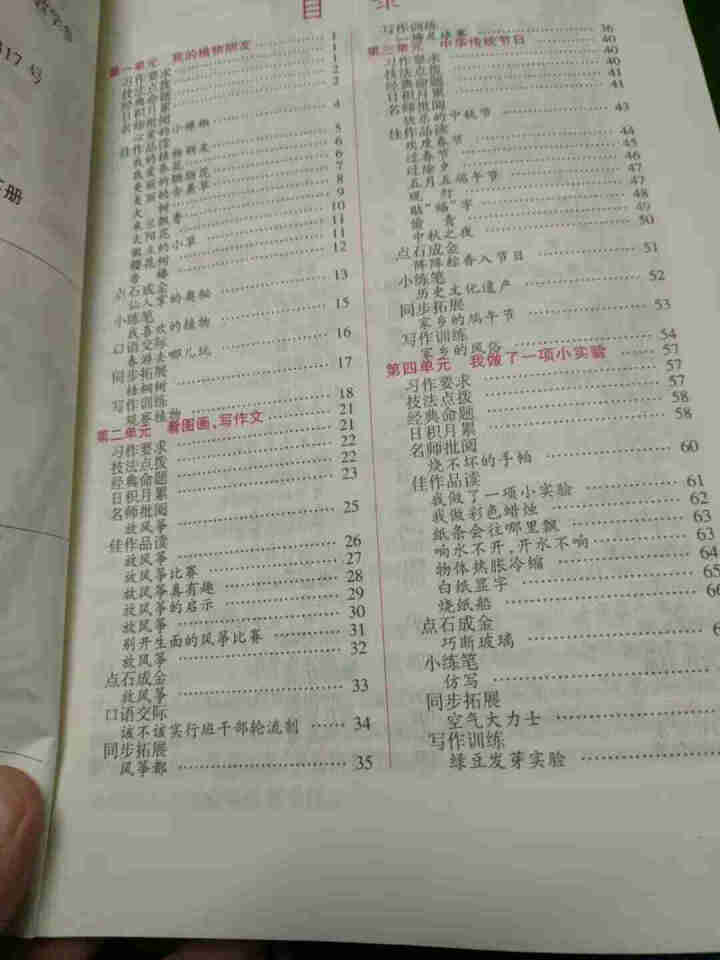 目 录
第一单元 我的植物朋友 1
习作要求 1
技法点拨 1
经典命题 2
日积月累 2
名师批阅
心爱的小辣椒 4
佳作品读
我的植物朋友 5
我爱养花 6
美丽的蝴蝶花 6
美丽的含羞草 7
大树 8
米兰飘香 9
太阳花 10
做人的小草 11
樱花树 11
香椿 12
点石成金
仙人掌的奥秘 13
小练笔
我喜欢的植物 15
口语交际
春游去哪儿玩 16
同步拓展
梧桐树 17
写作训练
观察植物 18
第二单元 看图画,写作文 21
习作要求 21
技法点拨 22
经典命题 22
日积月累 23
名师批阅
放风筝 25
佳作品读
放风筝 26
放风筝比赛 27
放风筝真有趣 28
放风筝的启示 29
放风筝 30
别开生面的风筝比赛 31
放风筝 32
点石成金
放风筝 33
口语交际
该不该实行班干部轮流制 34
同步拓展
风筝都 35
写作训练
36
第三单元 中华传统节日 40
习作要求 40
技法点拨 40
经典命题 41
日积月累 41
名师批阅
快乐的中秋节 43
佳作品读
欢度春节 44
过春节 45
过除夕 46
五月五端午节 47
观灯 47
贴“福”字 48
偷青 49
中秋之夜 50
点石成金
阵阵粽香入节日 51
小练笔
历史文化遗产 52
同步拓展
家乡的端午节 53
写作训练
家乡的风俗 54
第四单元 我做了一项小实验 57
习作要求 57
技法点拨 57
经典命题 58
日积月累 58
名师批阅
烧不坏的手帕 60
佳作品读
我做了一项小实验 61
我做彩色蜡烛 62
纸条会往哪里飘 63
响水不开,开水不响 63
物体热胀冷缩 64
白纸显字 65
烧纸船
点石成金
巧断玻璃
小练笔
仿写
同步拓展
空气大力士
写作训练
绿豆发芽实验